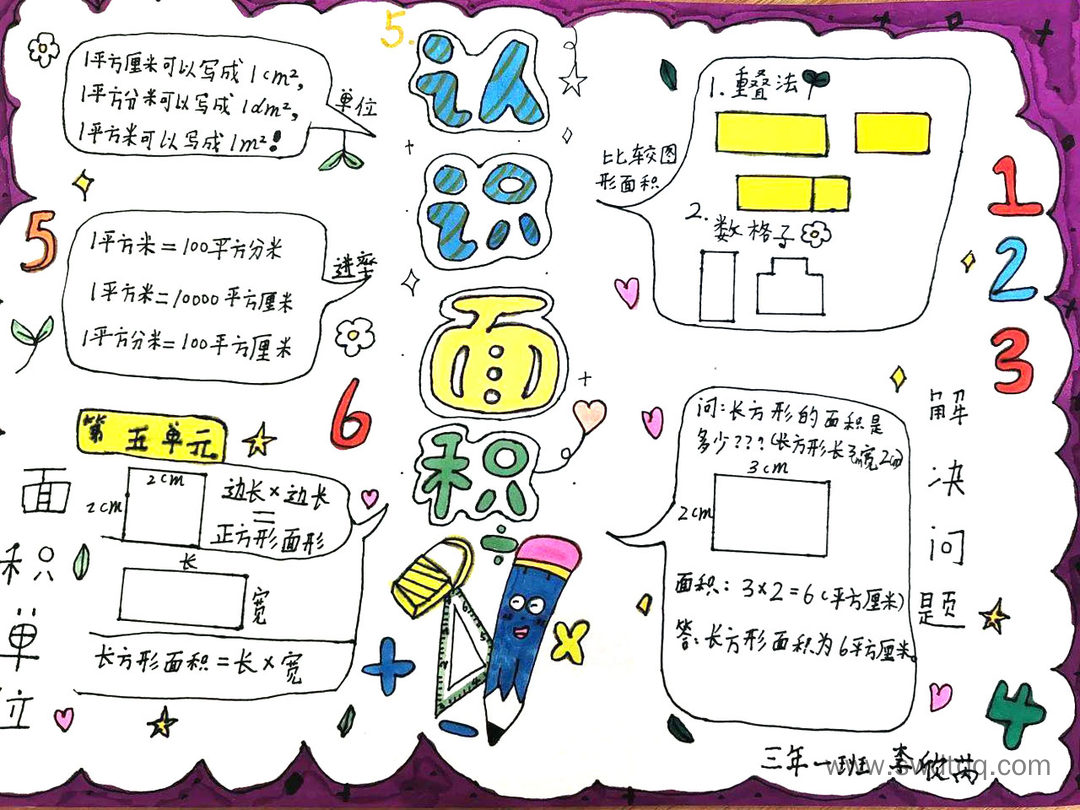 5.
认
识
面
积
1平方厘米可以写成1cm²,
1平方分米可以写成1dm²,
1平方米可以写成1m²!
单位
5
1平方米=100平方分米
1平方米=10000平方厘米
1平方分米=100平方厘米
进率
6
第五单元
面
积
单
位
2cm
2cm
边长×边长
=
正方形面形
长
宽
长方形面积=长×宽
比较图
形面积
1.重叠法
2.数格子
1
2
3
4
问:长方形的面积是
多少???(长方形长3cm宽2cm)
3cm
2cm
面积:3×2=6(平方厘米)
答:长方形面积为6平方厘米。
解
决
问
题
三年一班 李欣芮